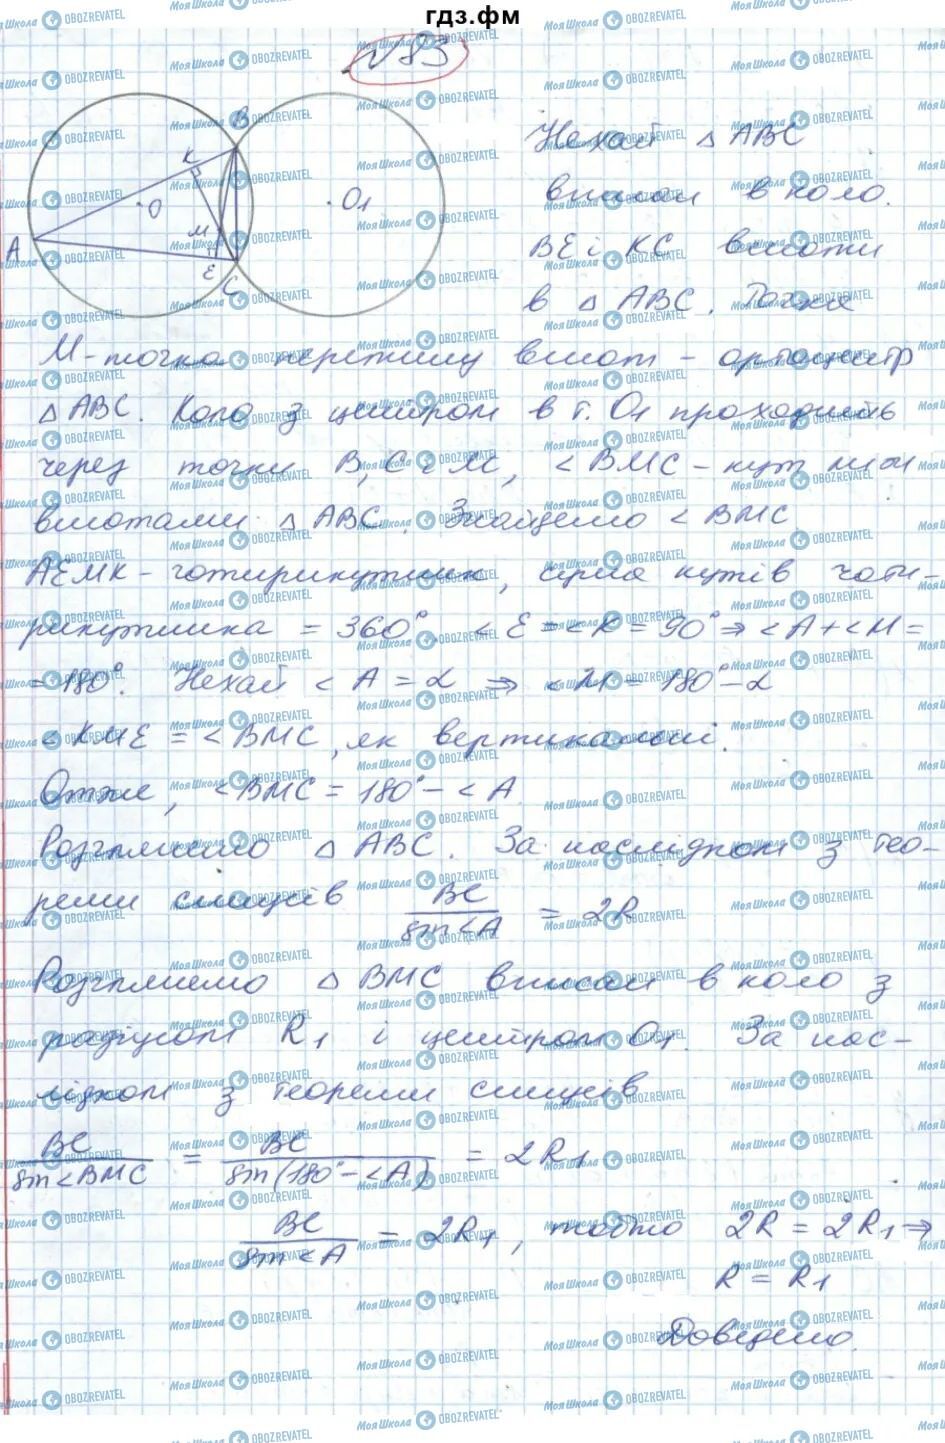 гдз.фм
N83
B
K
O
O₁
A
M
E
C
Нехай △ABC
вписан в коло.
BE і KC висоти
в △ABC. Точка
M - точка перетину висот - ортоцентр
△ABC. Коло з центром в т. O₁ проходить
через точки B, C і M, <BMC - кут між
висотами △ABC. Знайдемо <BMC.
AEMK - чотирикутник, сума кутів чоти-
рикутника = 360° <E = <K = 90° ⇒ <A + <M =
= 180°. Нехай <A = α ⇒ <M = 180° - α
<KME = <BMC, як вертикальні.
Отже, <BMC = 180° - <A
Розглянемо △ABC. За наслідком з тео-
реми синусів BC / sin<A = 2R
Розглянемо △BMC вписан в коло з
радіусом R₁ і центром O₁. За нас-
лідком з теореми синусів
BC / sin<BMC = BC / sin(180° - <A) = 2R₁
BC / sin<A = 2R₁, тобто 2R = 2R₁ ⇒
R = R₁
Доведено.